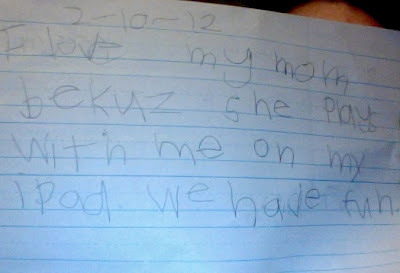 2-10-12
I love my mom
bekuz she plays
with me on my
ipad. we have fun.